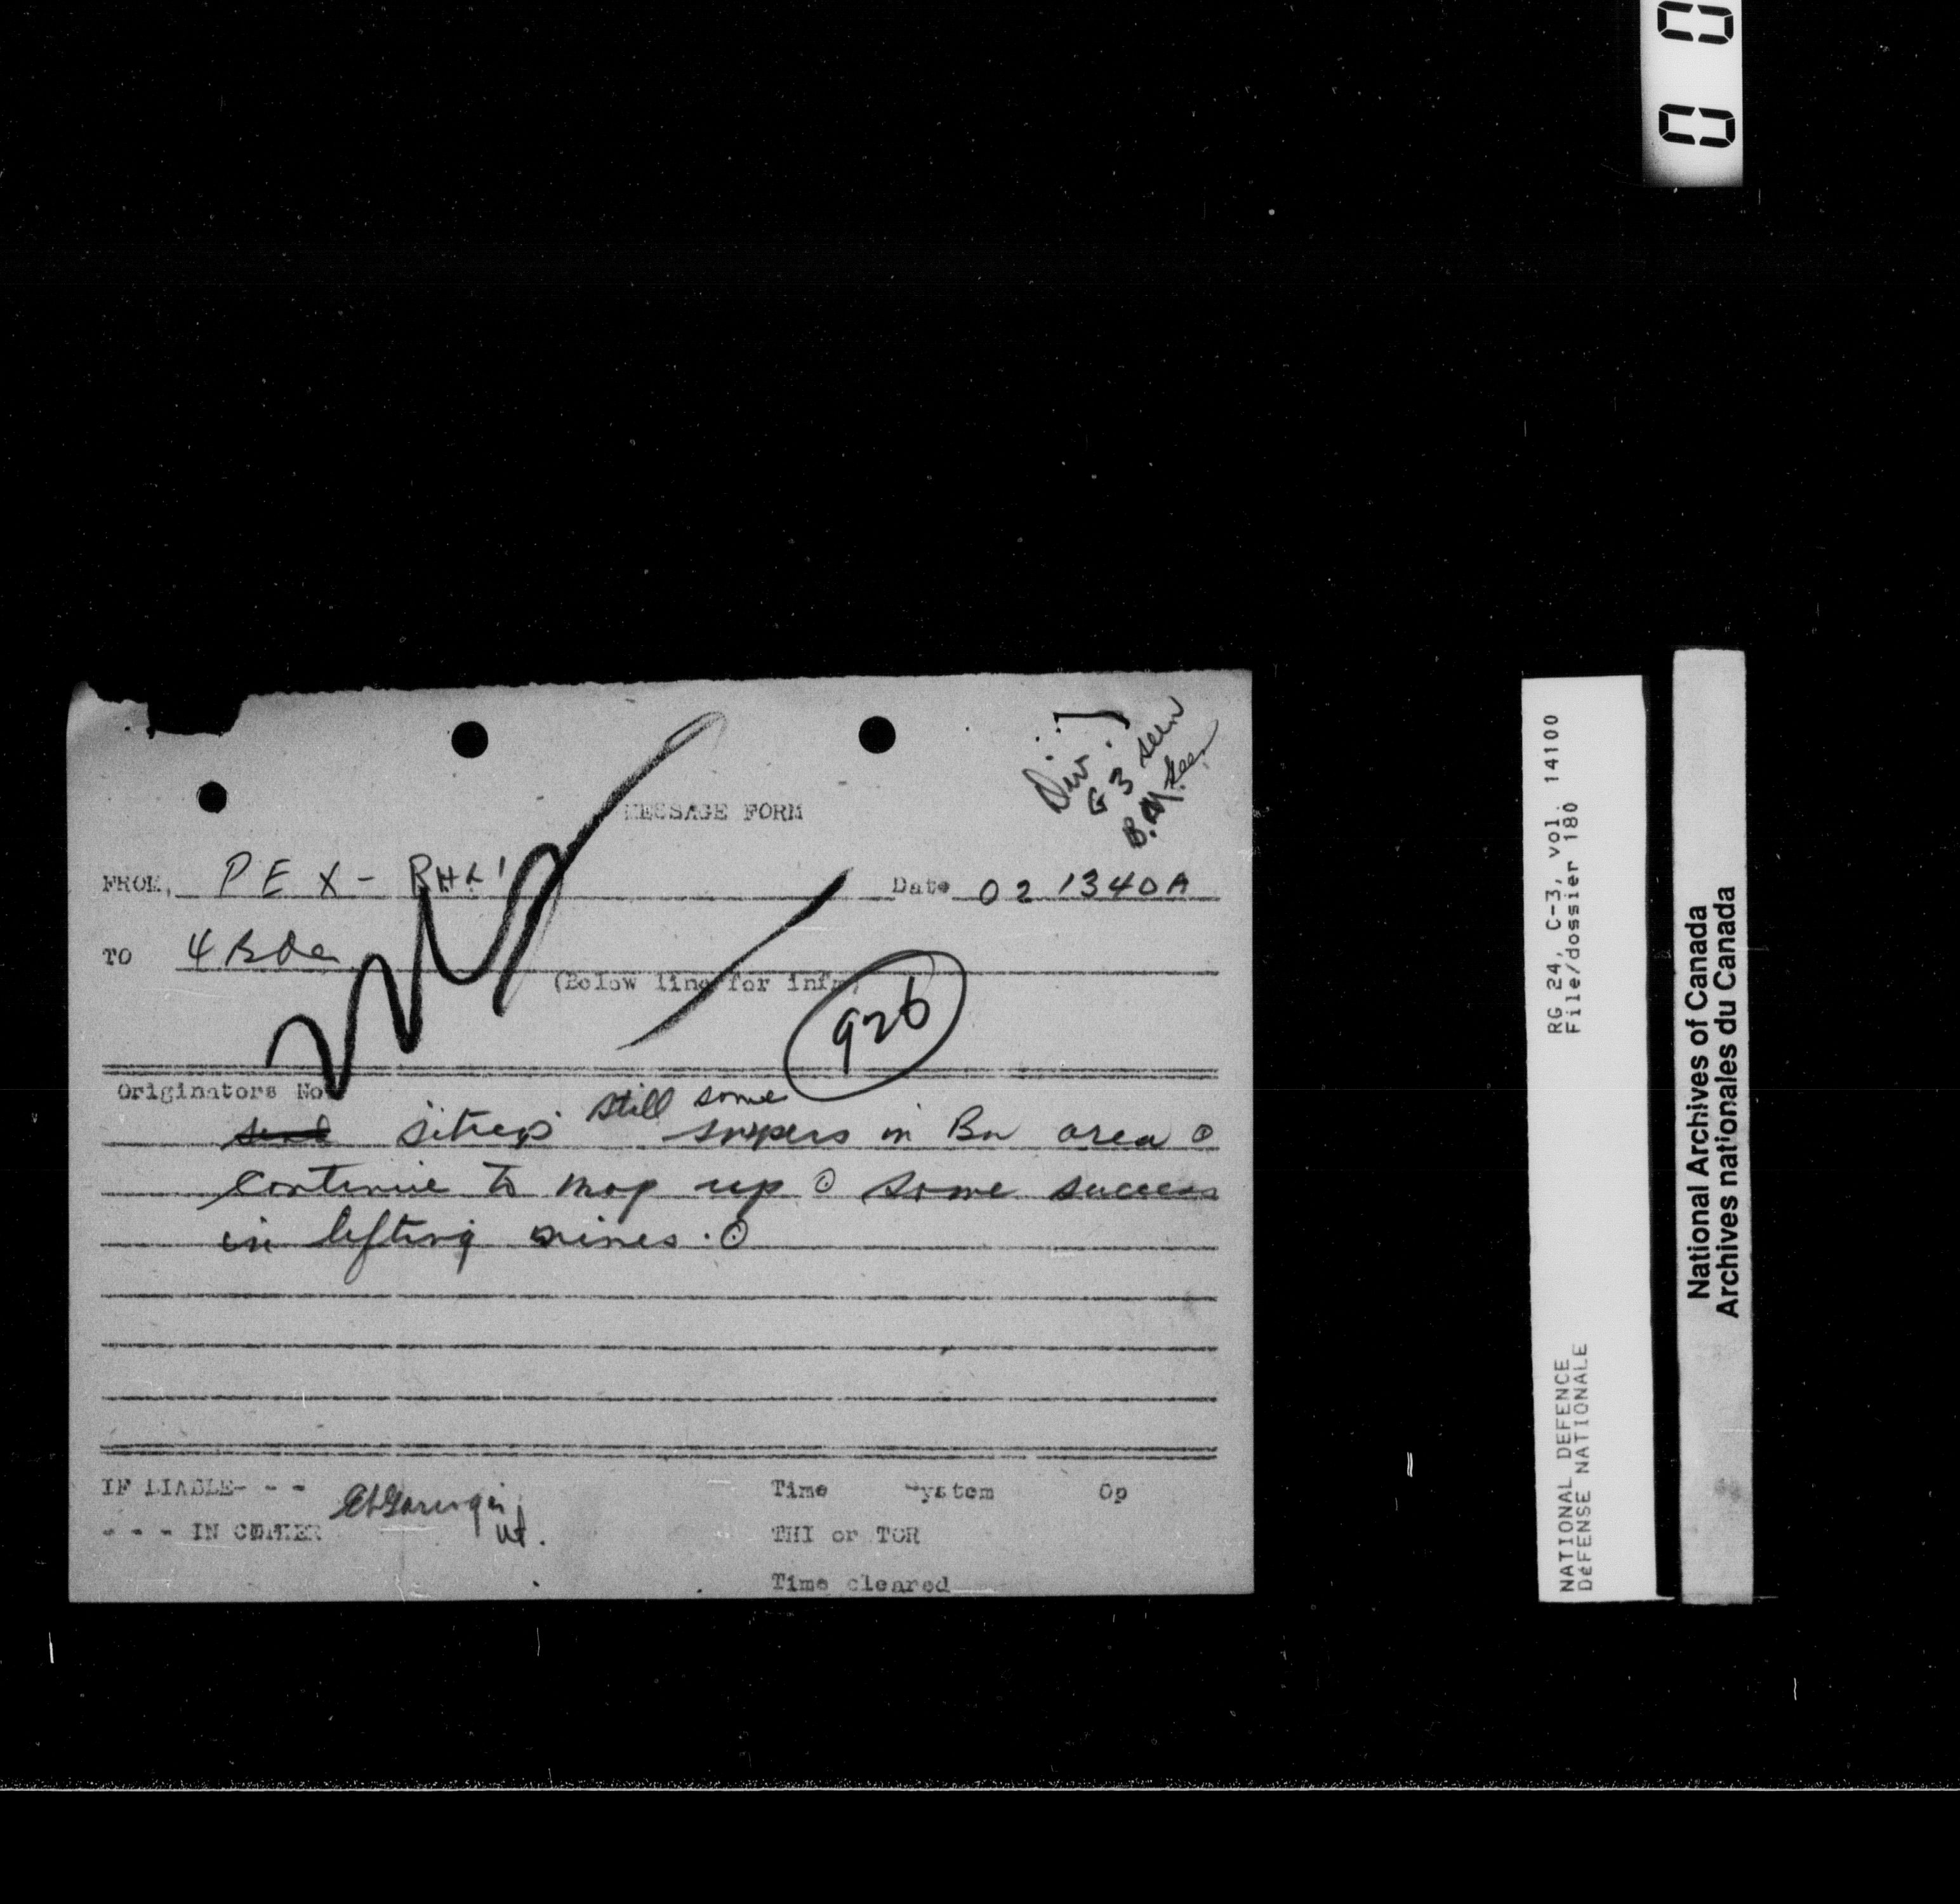 0 0
Div.
G 3 seen
B.M. seen
MESSAGE FORM
FROM, PEX - RHLI Date 02 1340A
TO 4 Bde
(Below line for infm)
926
Originators No
still some
sitrep snipers in Bn area ⊙
continue to mop up ⊙ some success
in lifting mines . ⊙
IF LIABLE- - - Time System Op
- - - IN CIPHER THI or TOR
Time cleared
RG 24, C-3, vol. 14100
File/dossier 180
NATIONAL DEFENCE
DéFENSE NATIONALE
National Archives of Canada
Archives nationales du Canada